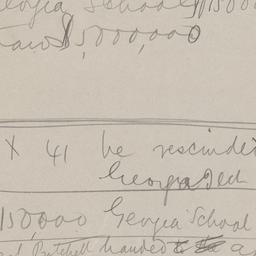 Georgia School $15000
$5,000,000
X 41 be rescinded
Georgia Ded
150,000 Georgia School
Pritchett handed to